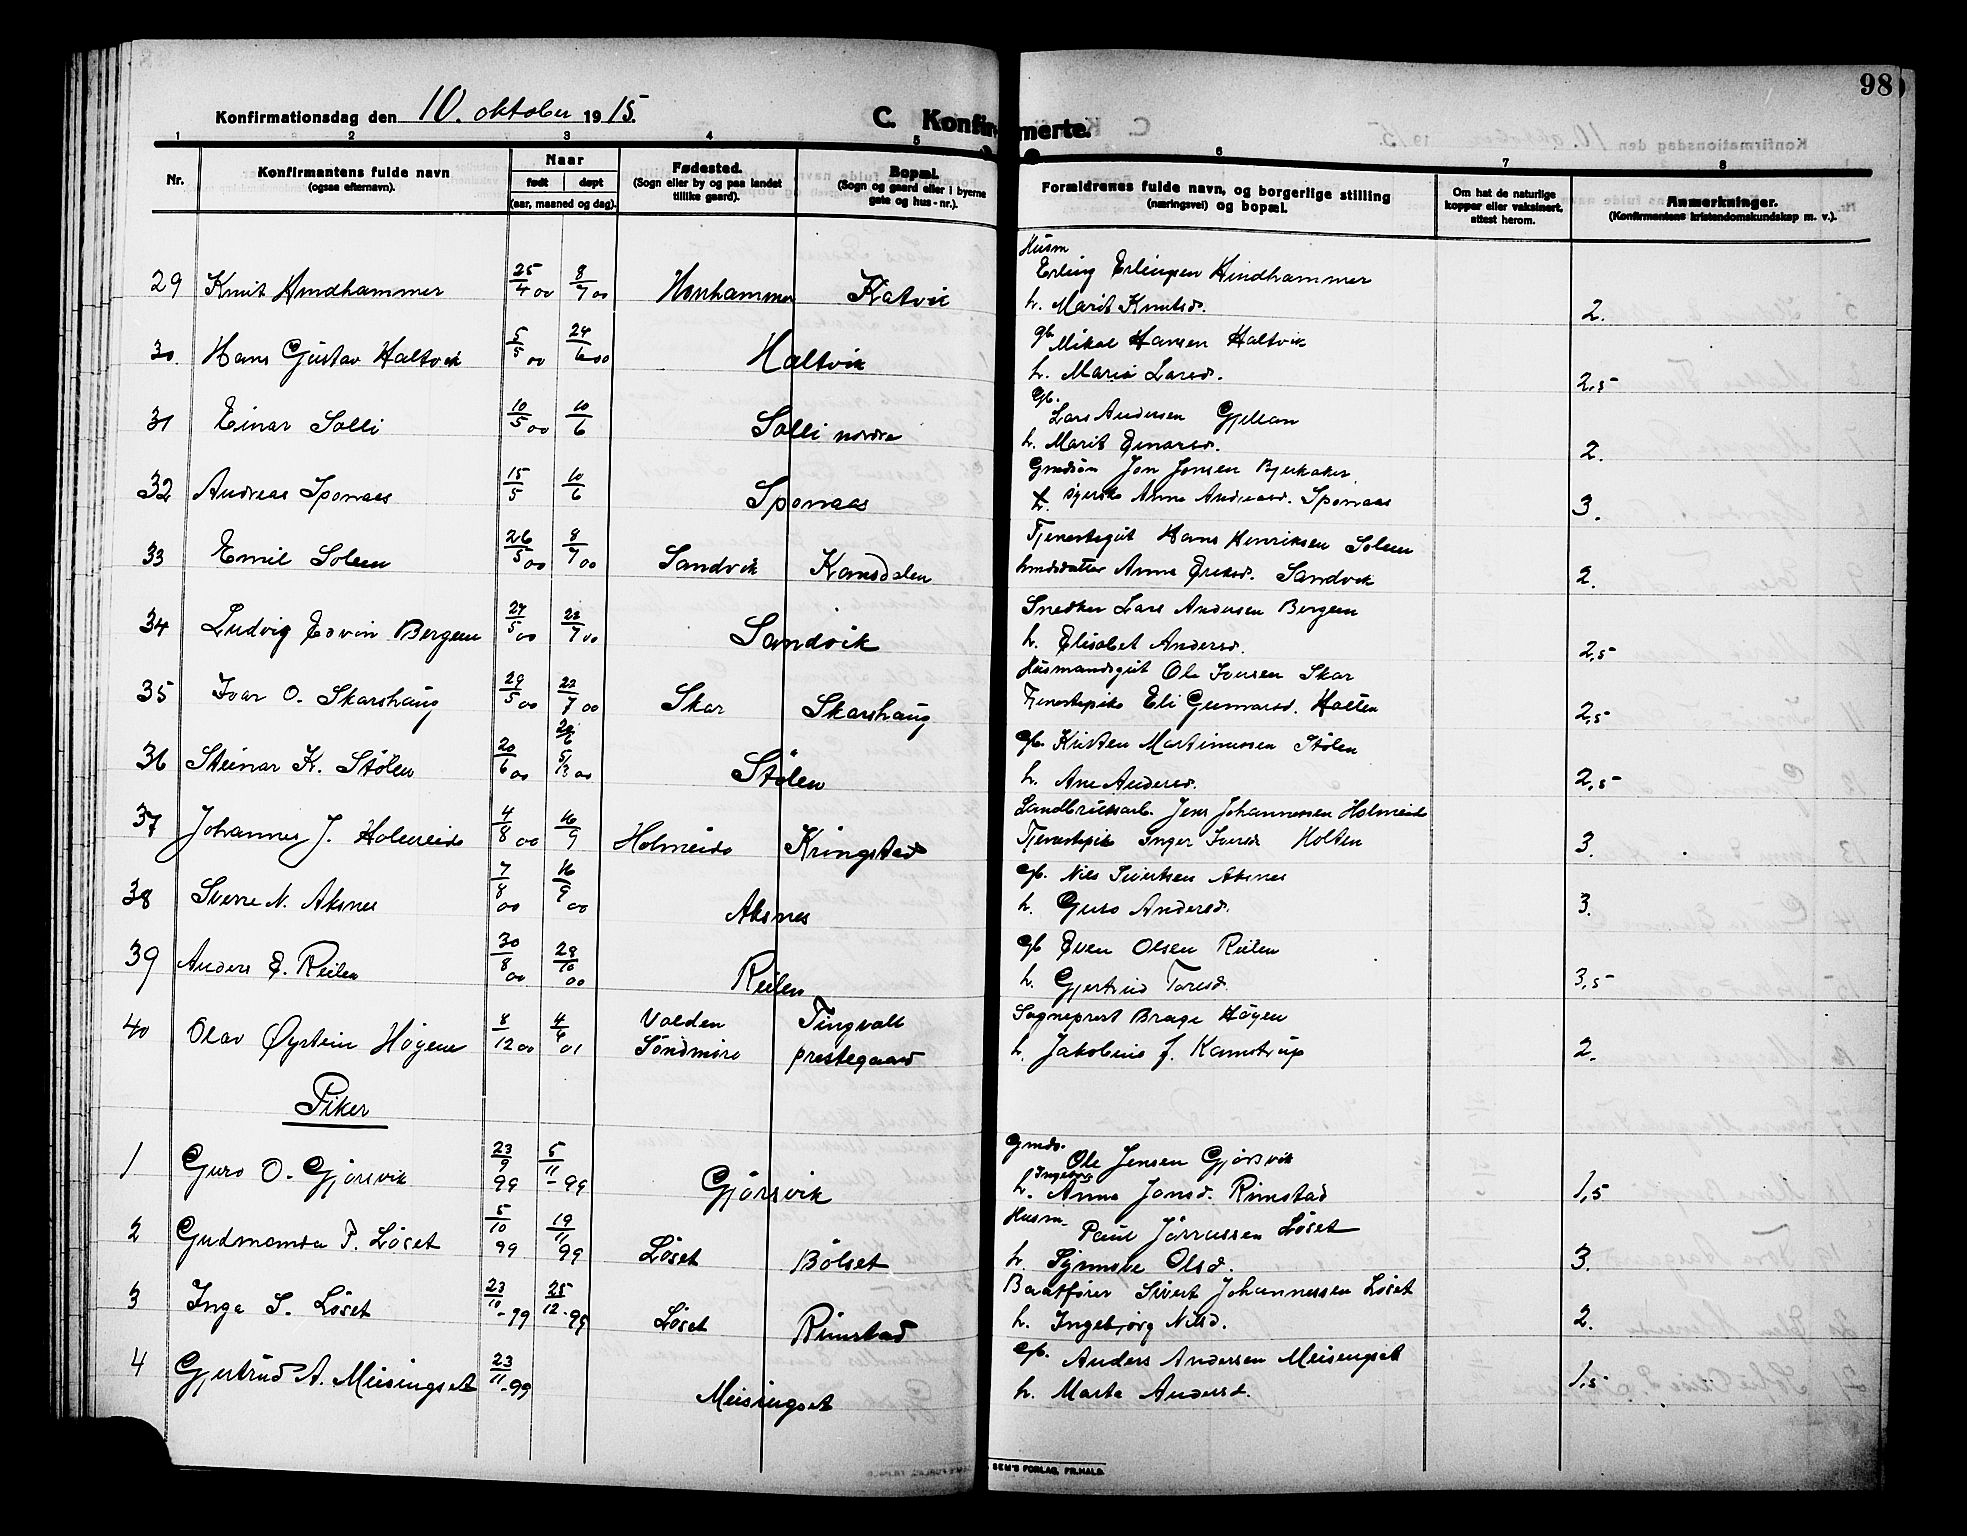 98
Konfirmationsdag den 10. oktober 1915.
C. Konfirmerte.
1 2 3 4 5 6 7 8
Nr.
Konfirmantens fulde navn
(ogsaa efternavn).
Naar
født døpt
(aar, maaned og dag).
Fødested.
(Sogn eller by og paa landet
tillike gaard).
Bopæl.
(Sogn og gaard eller i byerne
gate og hus-nr.).
Forældrenes fulde navn, og borgerlige stilling
(næringsvei) og bopæl.
Om hat de naturlige
kopper eller vaksinert,
attest herom.
Anmerkninger.
(Konfirmantens kristendomskundskap m. v.).
Husm
29 Knut Hindhammer 25/4 00 8/7 00 Honhammer Katvik Erling Erlingsen Hindhammer
h. Marit Knutsd. 2.
30. Hans Gustav Holtvik 5/5 00 24/6 00 Holtvik gb. Mikal Hansen Holtvik
h. Maria Larsd. 2,5
gb.
31 Einar Solli 10/5 00 10/6 Solli nordre Lars Andersen Gjellan
h. Marit Einarsd. 2.
32 Andreas Sponaas 15/5 10/6 Sponaas Grndsøn Jon Jonsen Bjerkaker
h. Anne Andreasd. Sponaas 3.
33 Emil Solem 26/5 00 8/7 00 Sandvik Kamsdalen Tjenestegut Hans Henriksen Solem
Anne Eriksd. Sandvik 2.
34 Ludvig Edvin Bergem 27/5 00 22/7 00 Sandvik Snedker Lars Andersen Bergem
h. Elisabet Andersd. 2,5
35 Ivar O. Skarshaug 29/5 00 22/7 00 Skar Skarshaug Husmandsgut Ole Iversen Skar
Tjenestepike Eli Gunnarsd. Holten 2,5
36 Steinar K. Stølen 20/6 00 24/6 5/13 00 Stølen gb. Kristen Martinussen Stølen
h. Ane Andersd. 2,5
37 Johannes J. Holmeide 4/8 00 16/9 Holmeide Kringstad Landbruksarb. Jens Johannessen Holmeide
Tjenestepike Inger Iversd Holten 3.
38 Sverre N. Aksnes 7/8 00 16/9 00 Aksnes gb. Nils Sivertsen Aksnes
h. Guro Andersd. 3.
39 Anders E. Reilen 30/8 00 28/10 00 Reilen gb Even Olsen Reilen
h. Gjertrud Toresd. 3,5
40 Olav Øystein Høgene 8/12 00 4/6 01 Volden Tingvoll Sogneprest Brage Høgen
Søndmøre prestegaard h. Jakobine J. Kamstrup 2.
Piker
Gmds.
1 Guro O. Gjørsvik 23/9 99 5/11 - 99 Gjørsvik Ole Jensen Gjørsvik
Ingeborg
h. Anna Jonsd. Rimstad 1,5
2 Gudmomda P. Løset 5/10 99 19/11 99 Løset Bølset Husm Paul Jørnssen Løset
h. Synnøve Olsd. 3.
3 Inga S. Løset 23/10 - 99 25/12 - 99 Løset Rimstad Baatfører Sivert Johannessen Løset
h. Ingebjørg Nilsd. 2.
4 Gjertrud A. Meisingset 23/11 - 99 Meisingset gb. Anders Andersen Meisingset
h. Marta Andersd. 1,5
SEM'S FORLAG, FR.HALD.